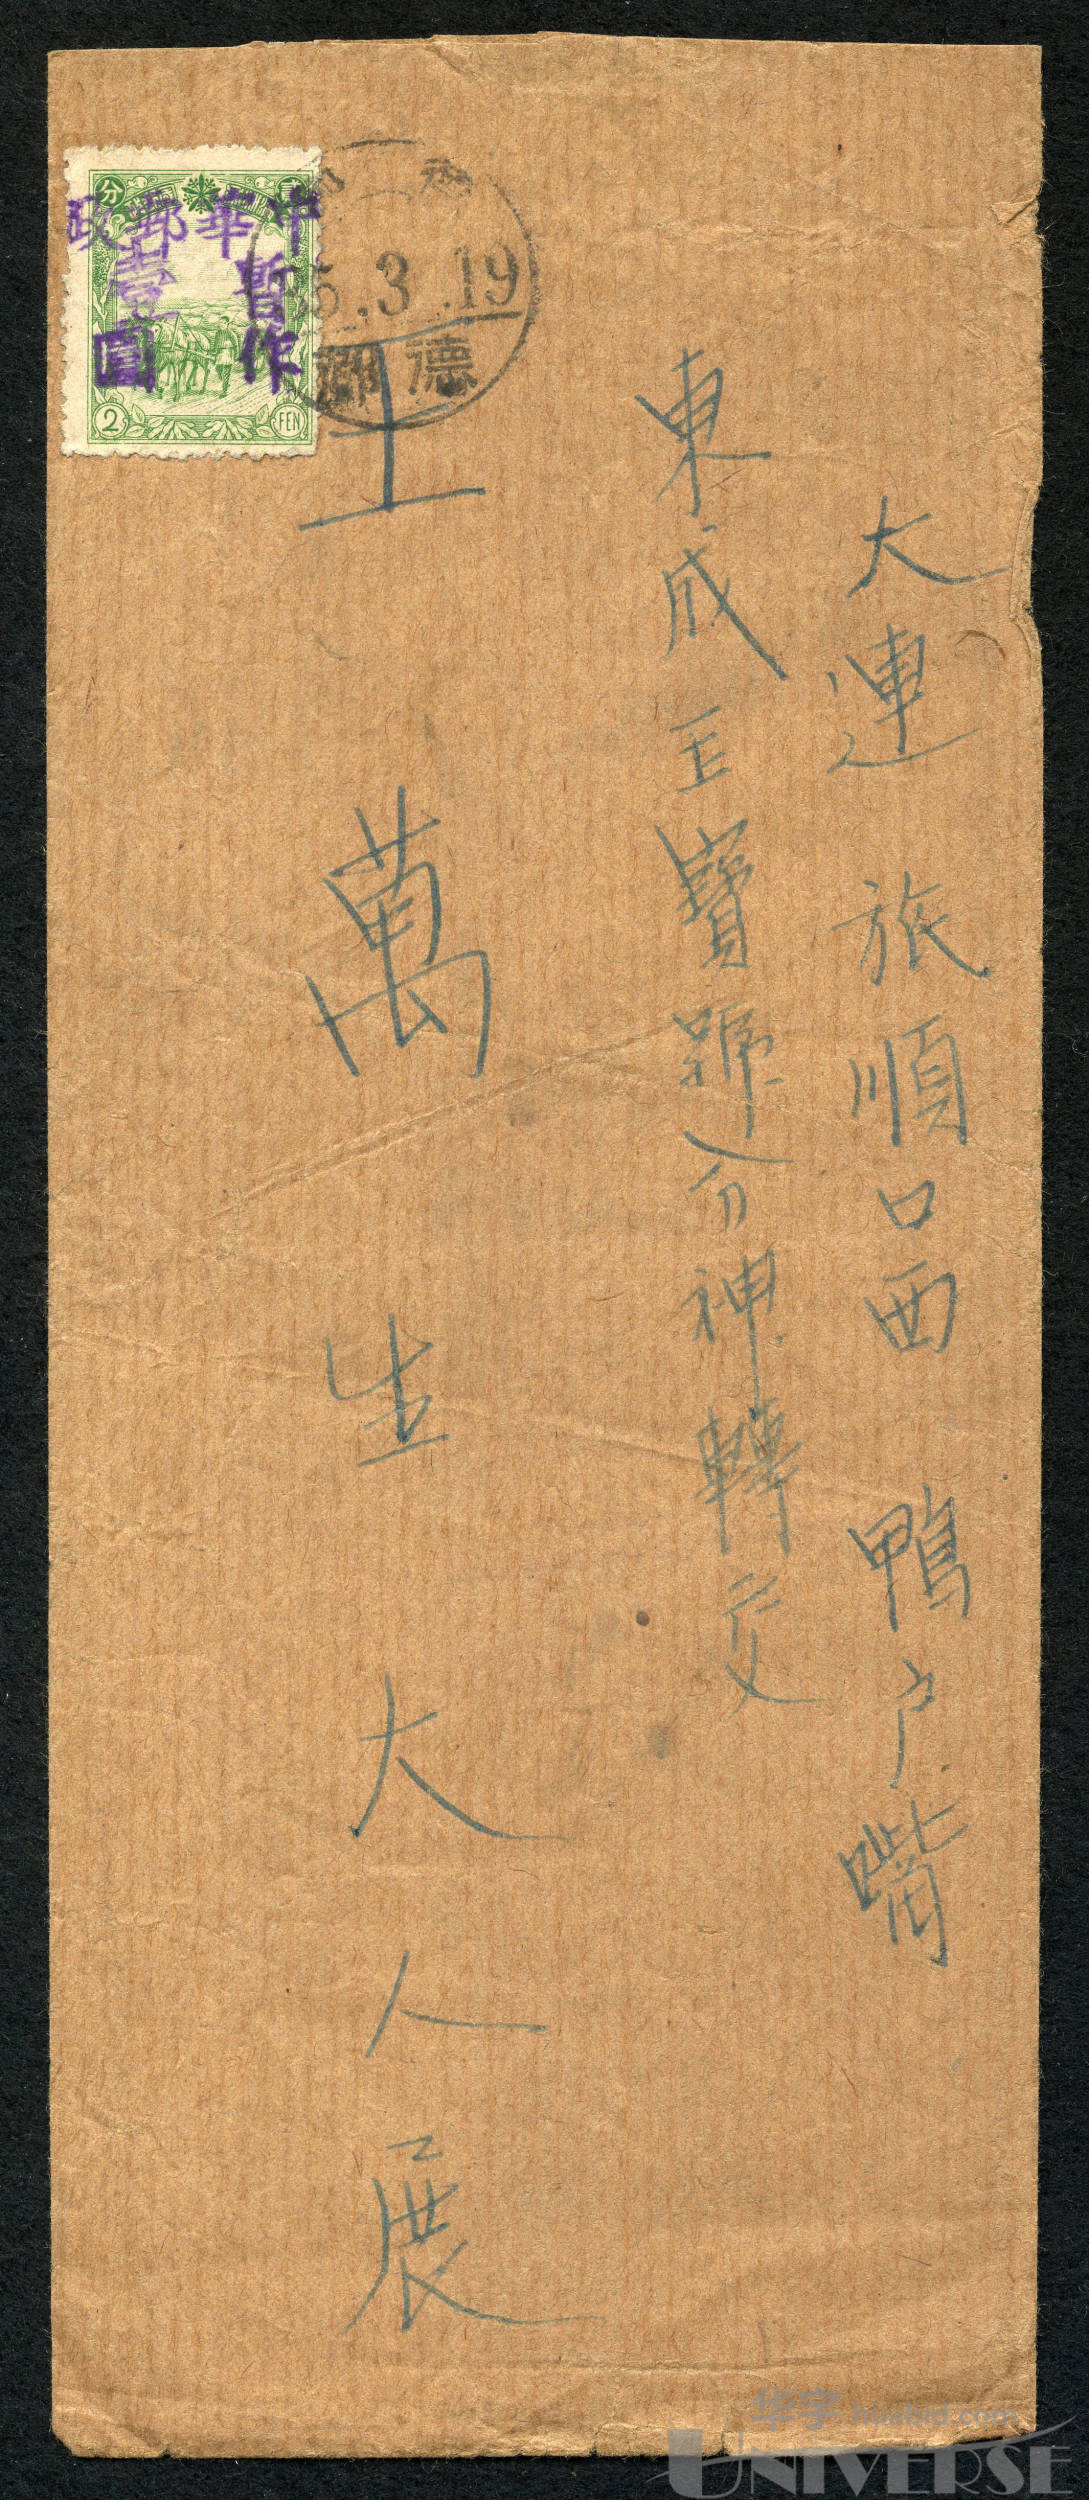 大連旅順口西鴨户嘴
東成玉寶號分神轉交
王萬生大人展
中華郵政
暫作
壹圓
分
2
FEN
35.3.19
德
华宇 huabid.com
UNIVERSE